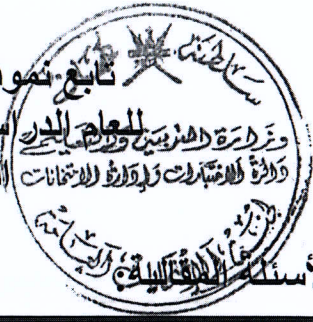 تابع نمو
سلطنة عمان
للعام الدراس
وزارة التربية والتعليم
دائرة الاختبارات وإدارة الامتحانات
سئلة المقالية: